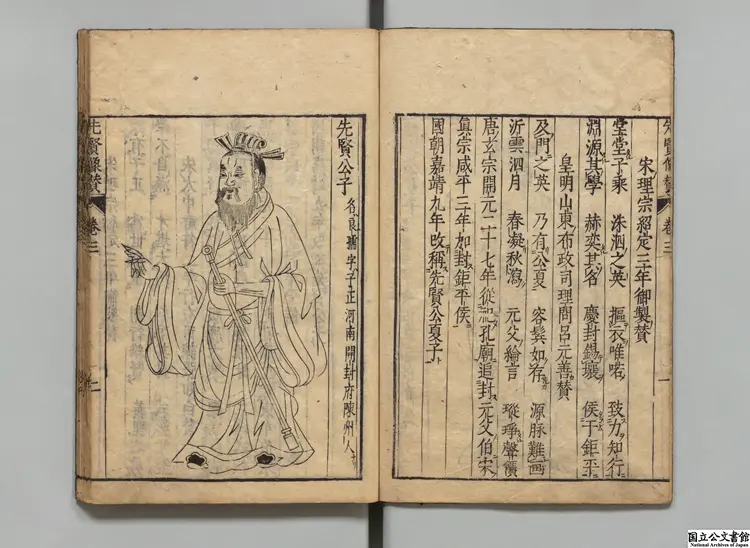 先賢像贊 卷三 一
宋理宗紹定三年御製贊
堂堂子乘 洙泗之英 摳衣唯喏 致力知行
淵源其學 赫奕其名 慶封錫壤 侯于鉅平
皇明山東布政司理問呂元善贊
及門之英 乃有公夏 容鬢如存 源脉難画
沂雲泗月 春凝秋瀉 元父綸言 瑽琤聲價
唐玄宗開元二十七年從祀孔廟追封元父伯宋
真宗咸平三年加封鉅平侯
國朝嘉靖九年改稱先賢公夏子
先賢公子 名良孺字子正河南開封府陳州人
先賢像贊 卷三
国立公文書館
National Archives of Japan